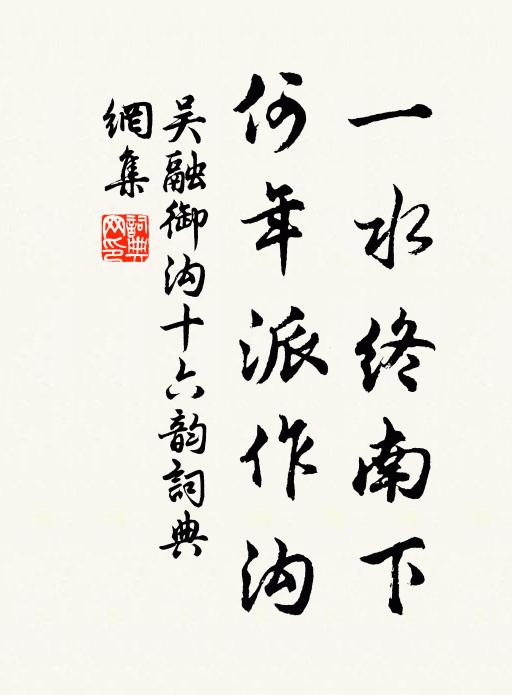 一水终南下
何年派作沟
吴融御沟十六韵詞典
網集
詞典
网印